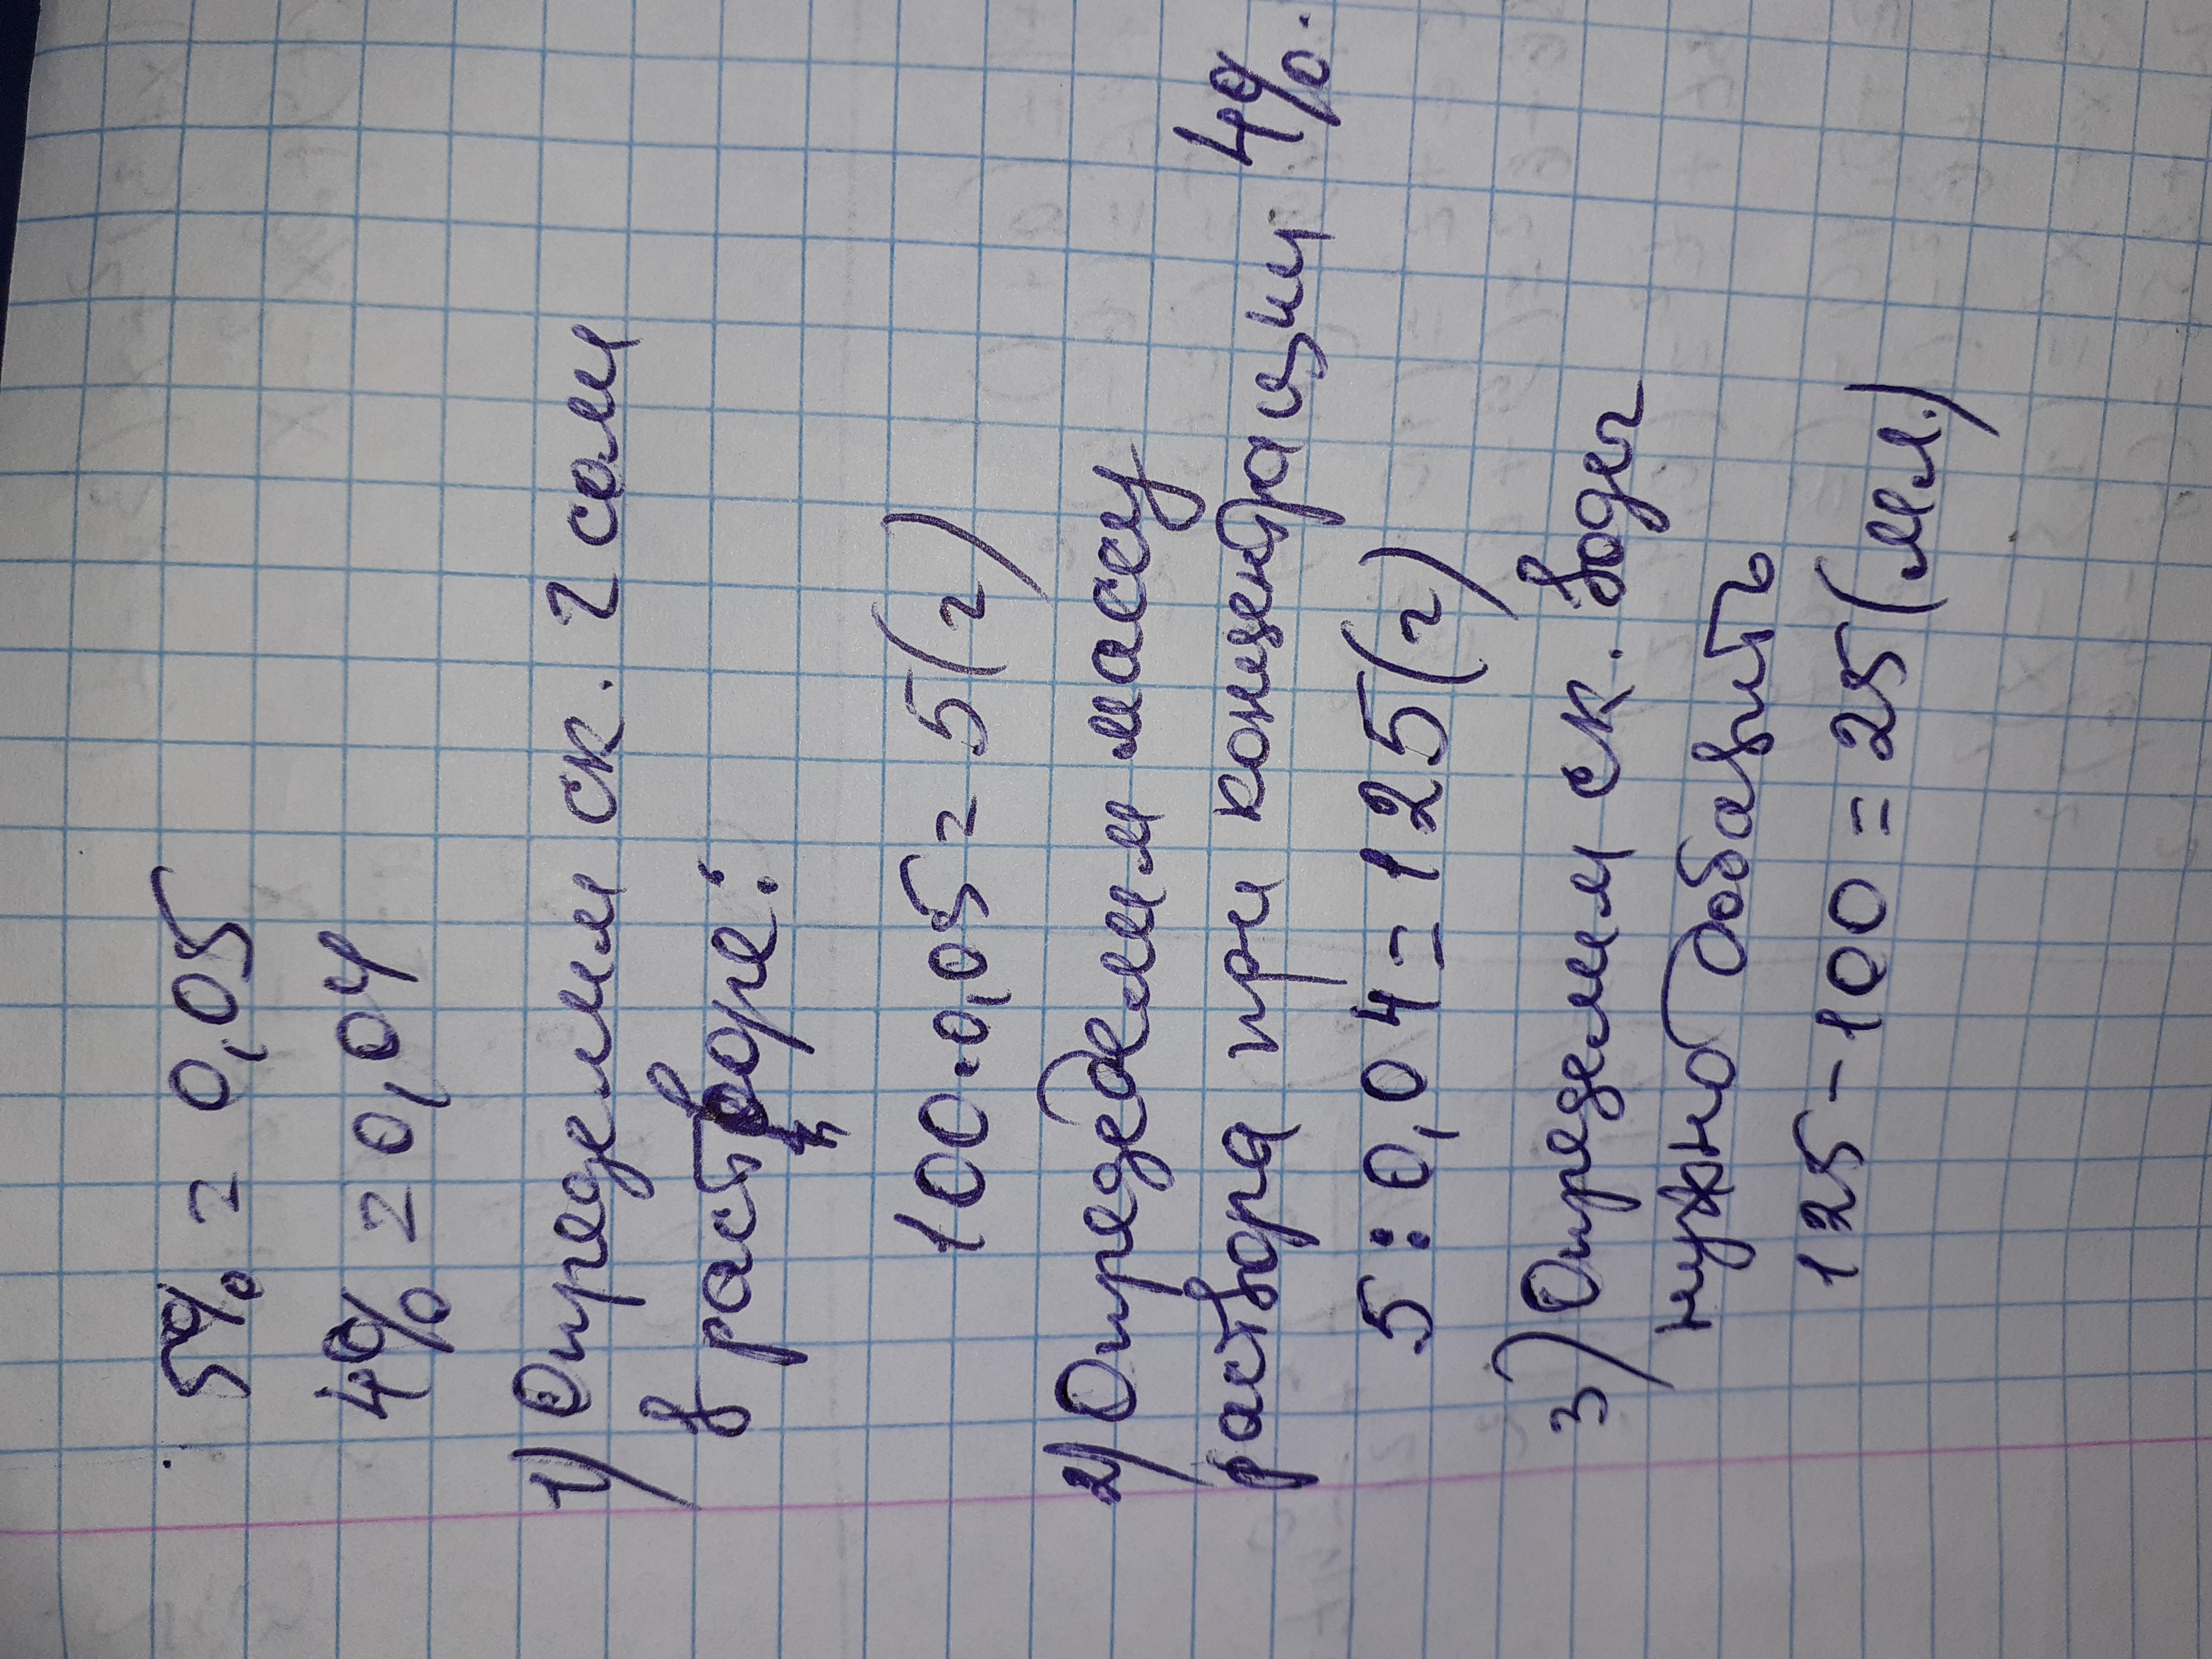 5% = 0,05
4% = 0,04
1) Определим ск. г соли
в растворе:
100·0,05 = 5(г)
2) Определим массу
раствора при концентрации 4%.
5:0,04=125(г)
3) Определим ск. воды
нужно добавить
125-100=25(мл.)